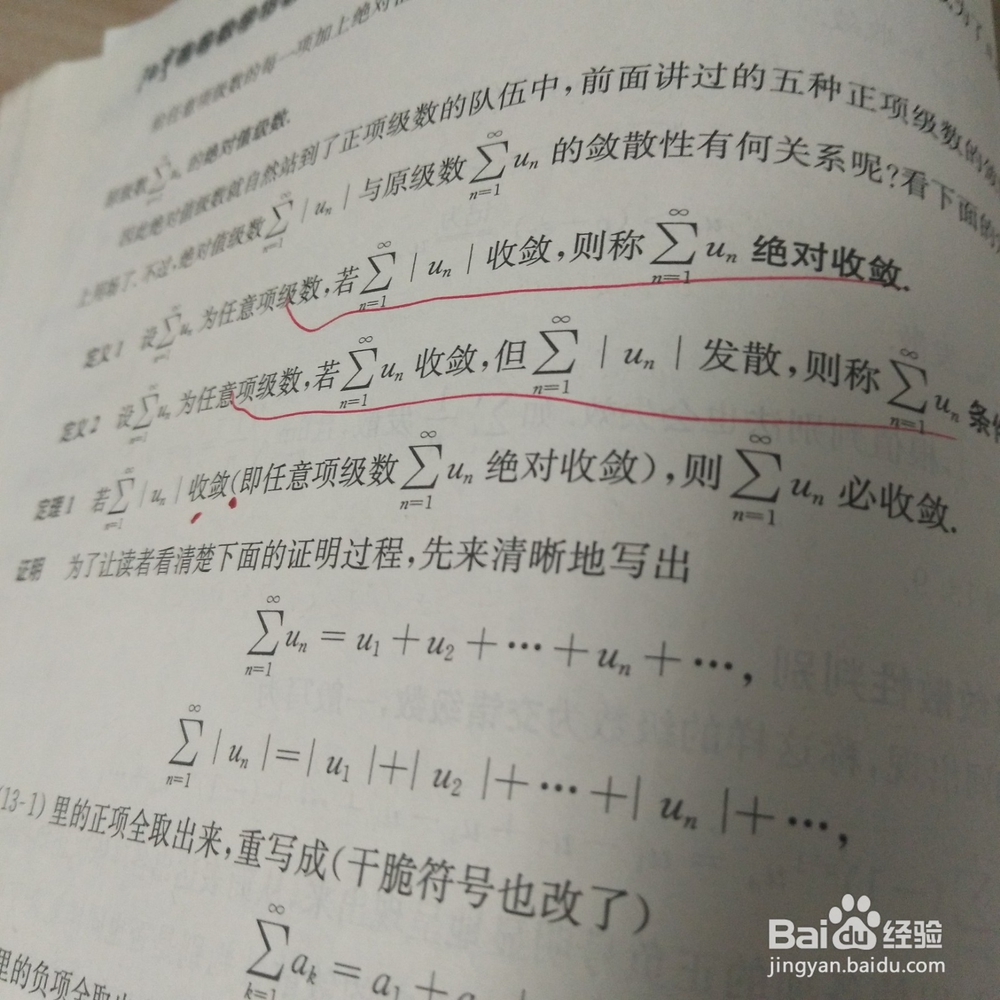 给任意项级数的每一项加上绝对值
原级数∑_{n=1}^{∞} u_n 的绝对值级数.
因此绝对值级数就自然站到了正项级数的队伍中,前面讲过的五种正项级数的
上用场了.不过,绝对值级数∑_{n=1}^{∞}|u_n|与原级数∑_{n=1}^{∞}u_n的敛散性有何关系呢?看下面的
定义1 设∑_{n=1}^{∞}u_n为任意项级数,若∑_{n=1}^{∞}|u_n|收敛,则称∑_{n=1}^{∞}u_n绝对收敛.
定义2 设∑_{n=1}^{∞}u_n为任意项级数,若∑_{n=1}^{∞}u_n收敛,但∑_{n=1}^{∞}|u_n|发散,则称∑_{n=1}^{∞}u_n条件
定理1 若∑_{n=1}^{∞}|u_n|收敛(即任意项级数∑_{n=1}^{∞}u_n绝对收敛),则∑_{n=1}^{∞}u_n必收敛.
证明 为了让读者看清楚下面的证明过程,先来清晰地写出
∑_{n=1}^{∞}u_n=u_1+u_2+⋯+u_n+⋯,
∑_{n=1}^{∞}|u_n|=|u_1|+|u_2|+⋯+|u_n|+⋯,
(13-1)里的正项全取出来,重写成(干脆符号也改了)
∑_{k=1}^{∞}a_k=a_1+
里的负项全取出
Baidu经验
jingyan.baidu.com